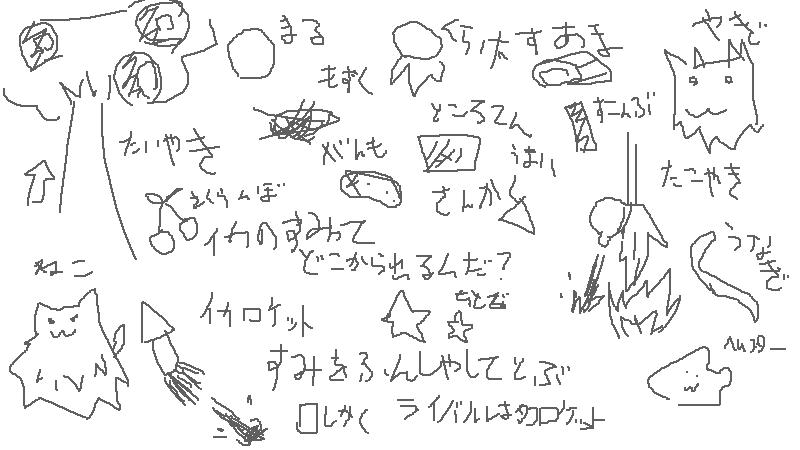 まる
くらげ
すあま
やぎ
もずく
たいやき
ところてん
こんぶ
がんも
うまい
さんかく
たこやき
さくらんぼ
イカのすみって
どこからでるんだ？
うなぎ
ねこ
イカロケット
ちとせ
ハムスター
すみをふんしゃしてとぶ
しかく
ライバルはタコロケット